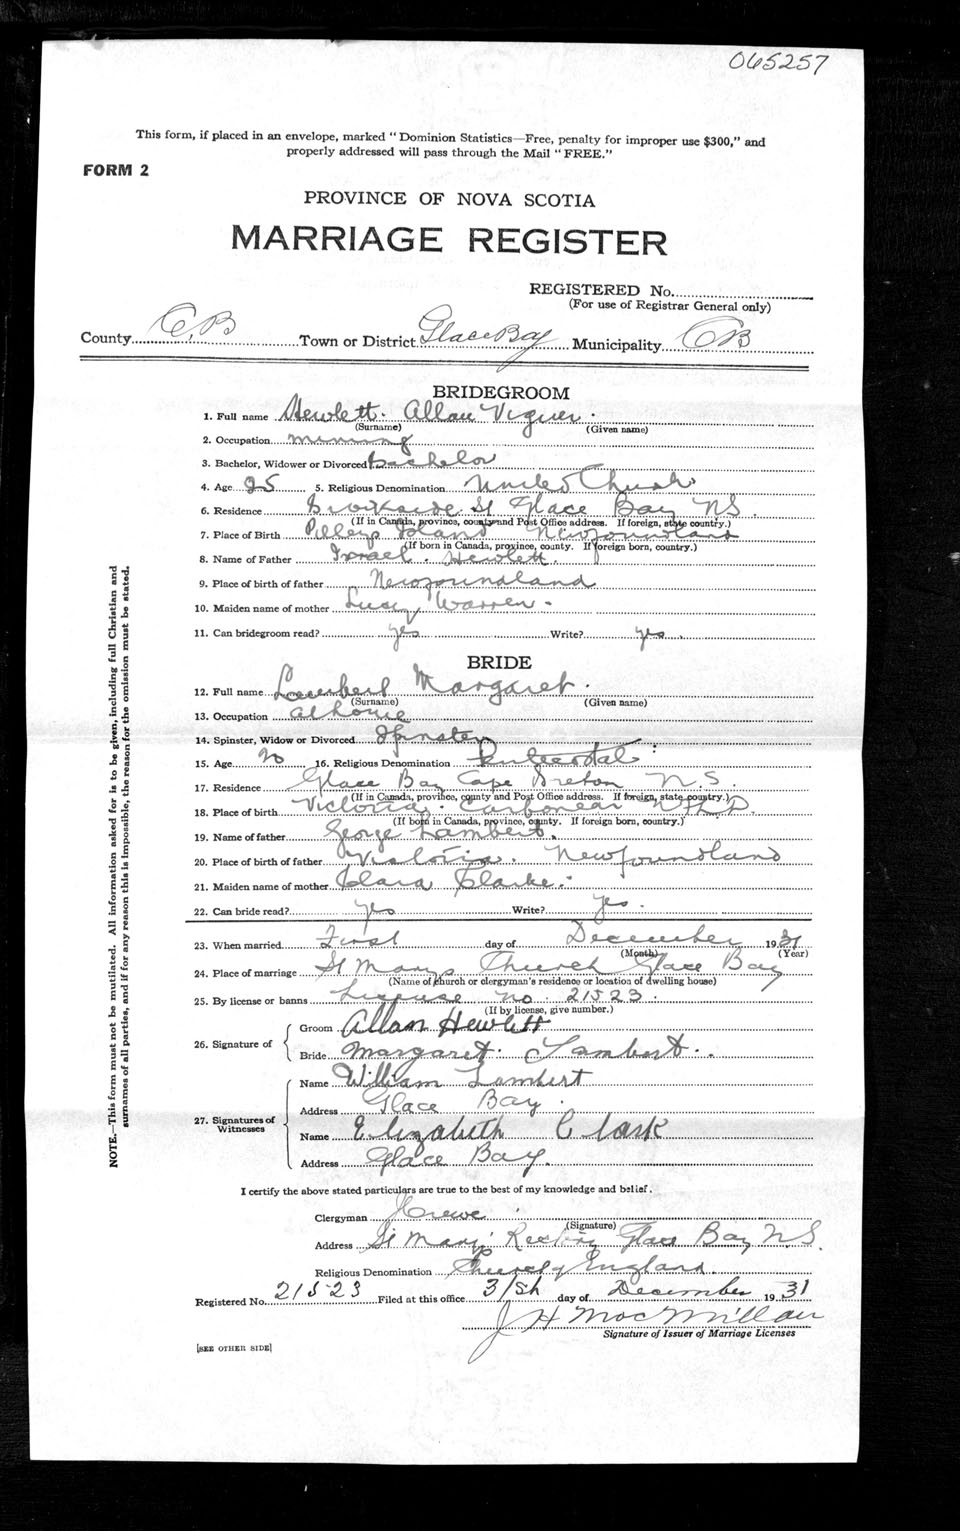 065257
This form, if placed in an envelope, marked "Dominion Statistics—Free, penalty for improper use $300," and
properly addressed will pass through the Mail "FREE."
FORM 2
PROVINCE OF NOVA SCOTIA
MARRIAGE REGISTER
REGISTERED No.
(For use of Registrar General only)
County C.B Town or District Glace Bay Municipality CB
BRIDEGROOM
1. Full name Hewlett. Allan
(Surname) (Given name)
2. Occupation mining
3. Bachelor, Widower or Divorced bachelor
4. Age 25 5. Religious Denomination United Church
6. Residence Brookside St Glace Bay NS.
(If in Canada, province, county and Post Office address. If foreign, state country.)
7. Place of Birth Pilleys Island Newfoundland
(If born in Canada, province, county. If foreign born, country.)
8. Name of Father Israel. Hewlett.
9. Place of birth of father Newfoundland
10. Maiden name of mother Lucy Warren -
11. Can bridegroom read? yes Write? yes.
BRIDE
12. Full name Lambert Margaret.
(Surname) (Given name)
13. Occupation at home
14. Spinster, Widow or Divorced Spinster
15. Age 16. Religious Denomination Pentecostal
17. Residence Glace Bay Cape Breton N.S.
(If in Canada, province, county and Post Office address. If foreign, state country.)
18. Place of birth Victoria. Carbonear NFLD.
(If born in Canada, province, county. If foreign born, country.)
19. Name of father George Lambert.
20. Place of birth of father Victoria. Newfoundland
21. Maiden name of mother Clara Clarke.
22. Can bride read? yes Write? yes.
23. When married First day of December 1931
(Month) (Year)
24. Place of marriage St Marys Church Glace Bay
(Name of church or clergyman's residence or location of dwelling house)
25. By license or banns License no. 21523.
(If by license, give number.)
26. Signature of
Groom Allan Hewlett
Bride Margaret. Lambert.
27. Signatures of Witnesses
Name William Lambert
Address Glace Bay.
Name Elizabeth Clark
Address Glace Bay.
I certify the above stated particulars are true to the best of my knowledge and belief.
Clergyman Crewe
(Signature)
Address St Marys Rectory Glace Bay N.S.
Religious Denomination Church of England.
Registered No. 21523 Filed at this office 31st day of December 1931
J H MacMillan
Signature of Issuer of Marriage Licenses
[SEE OTHER SIDE]
NOTE.—This form must not be mutilated. All information asked for is to be given, including full Christian and
surnames of all parties, and if for any reason this is impossible, the reason for the omission must be stated.